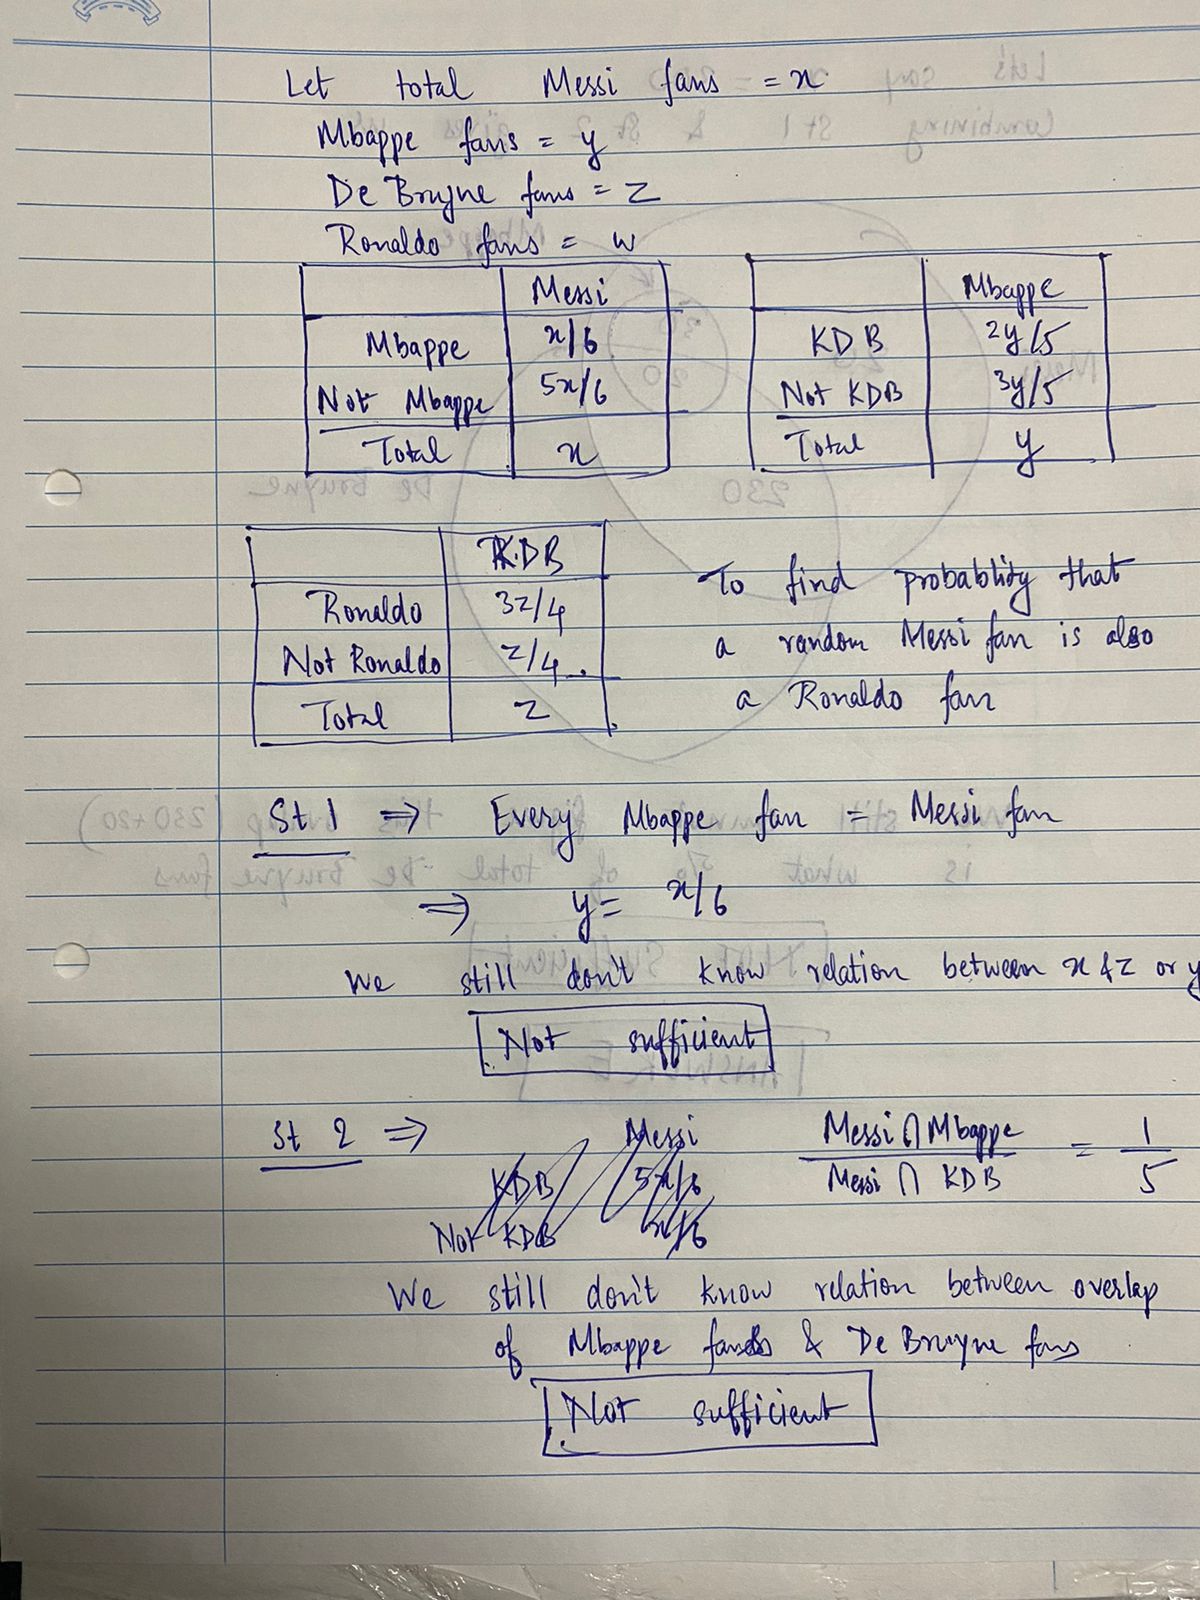 Let total Messi fans = x
Mbappe fans = y
De Bruyne fans = z
Ronaldo fans = w
Messi
Mbappe x/6
Not Mbappe 5x/6
Total x
Mbappe
KDB 2y/5
Not KDB 3y/5
Total y
KDB
Ronaldo 3z/4
Not Ronaldo z/4
Total z
To find probablity that
a random Messi fan is also
a Ronaldo fan
St 1 ⇒ Every Mbappe fan = Messi fan
⇒ y = x/6
We still don't know relation between x & z or y
Not sufficient
St 2 ⇒ Messi
KDB 5x/6
Not KDB x/6
Messi ∩ Mbappe / Messi ∩ KDB = 1/5
We still don't know relation between overlap
of Mbappe fans & De Bruyne fans
Not sufficient